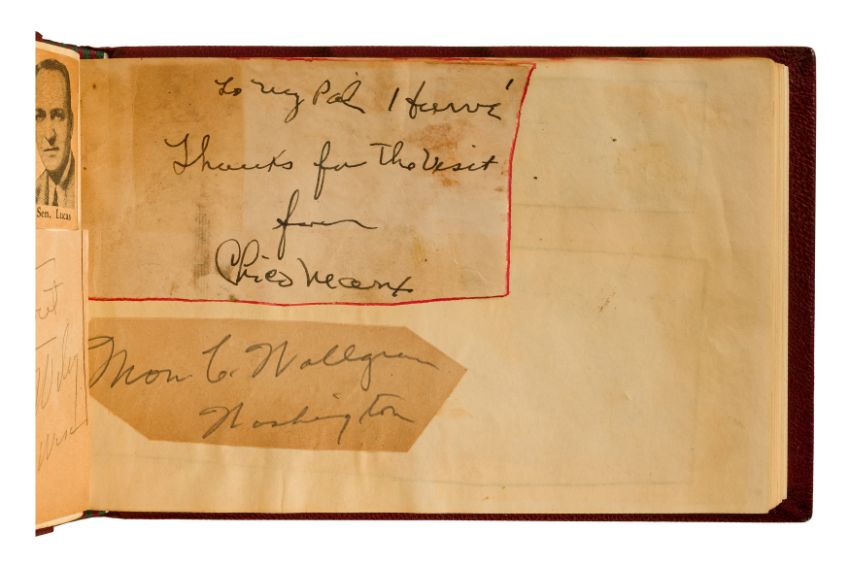 Sen. Lucas
To My Pal Hervé
Thanks for the Visit
from
Chico Marx
Mon C. Wallgren
Washington
Wiley